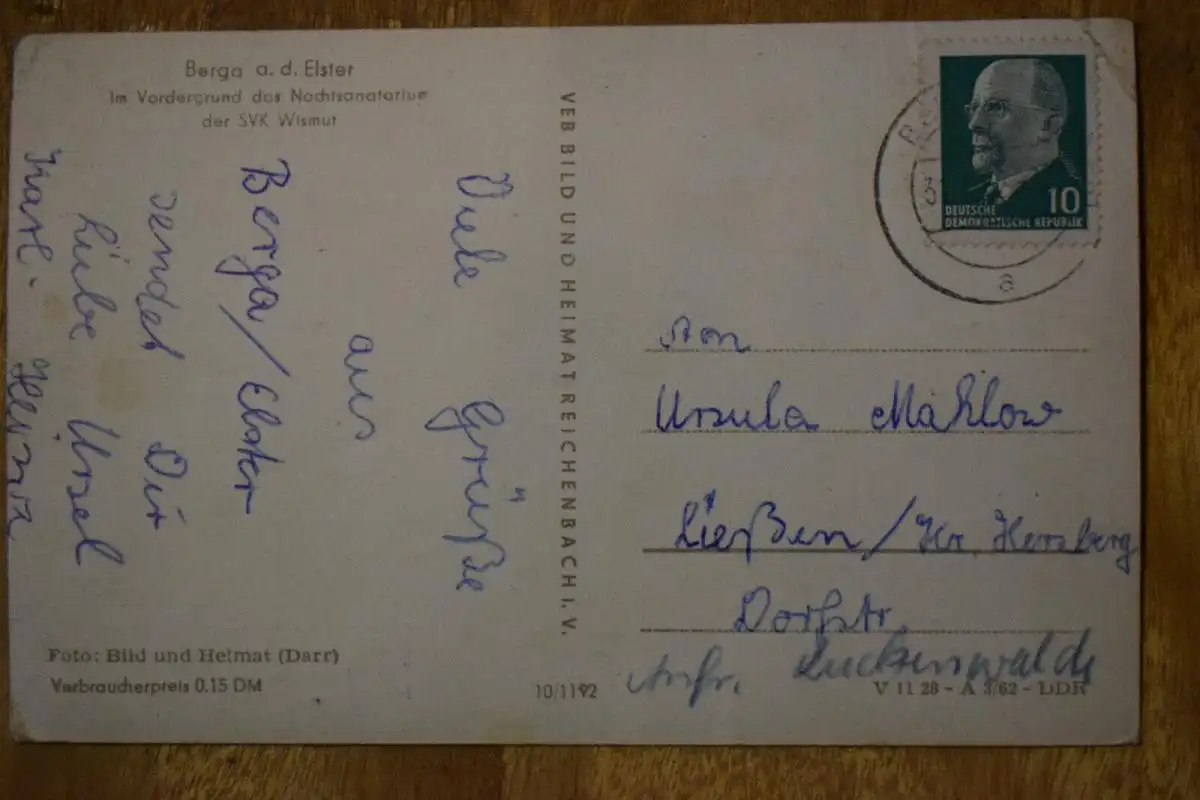 Berga a. d. Elster
Im Vordergrund das Nachtsanatorium
der SVK Wismut
Viele Grüße
aus
Berga/Elster
sendet Dir
Liebe Ursel
Karl-Heinz
VEB BILD UND HEIMAT REICHENBACH I. V.
10
DEUTSCHE
DEMOKRATISCHE REPUBLIK
a
Ursula Mahlow
Ließen/Kr. Herzberg
Dorfstr.
Luckenwalde
Foto: Bild und Heimat (Darr)
Verbraucherpreis 0.15 DM
10/1192
V 11 28 - A 3/62 - LDR